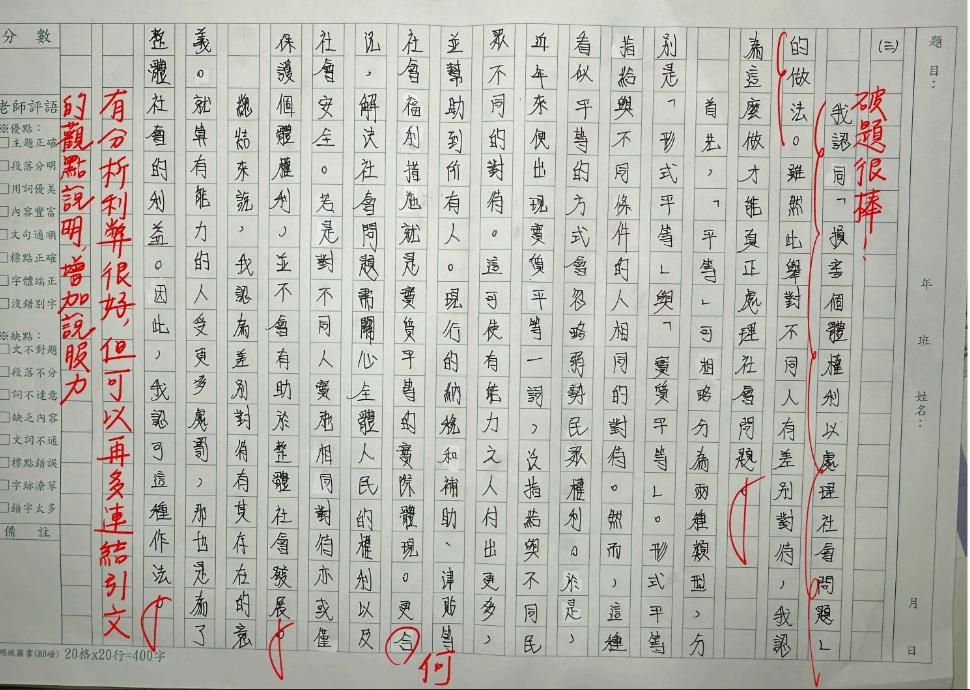 題目：
年 班 姓名： 月 日
（三）
我認同「損害個體權利以處理社會問題」
的做法。雖然此舉對不同人有差別對待，我認
為這麼做才能真正處理社會問題。
首先，「平等」可粗略分為兩種類型，分
別是「形式平等」與「實質平等」。形式平等
指給與不同條件的人相同的對待。然而，這種
看似平等的方式會忽略弱勢民眾權利。於是，
近年來便出現實質平等一詞，泛指給與不同民
眾不同的對待。這可使有能力之人付出更多，
並幫助到所有人。現行的納稅和補助、津貼等
社會福利措施就是實質平等的實際體現。更合
況，解決社會問題需關心全體人民的權利以及
社會安全。若是對不同人實施相同對待亦或僅
保護個體權利，並不會有助於整體社會發展。
總結來說，我認為差別對待有其存在的意
義。就算有能力的人受更多處罰，那也是為了
整體社會的利益。因此，我認可這種作法。
破題很棒！
何
有分析利弊很好，但可以再多連結引文
的觀點說明，增加說服力
分數
老師評語
※優點：
□主題正確
□段落分明
□用詞優美
□內容豐富
□文句通順
□標點正確
□字體端正
□沒錯別字
※缺點：
□文不對題
□段落不分
□詞不達意
□缺乏內容
□文詞不通
□標點錯誤
□字跡潦草
□錯字太多
備註
圖書(80磅) 20格x20行=400字